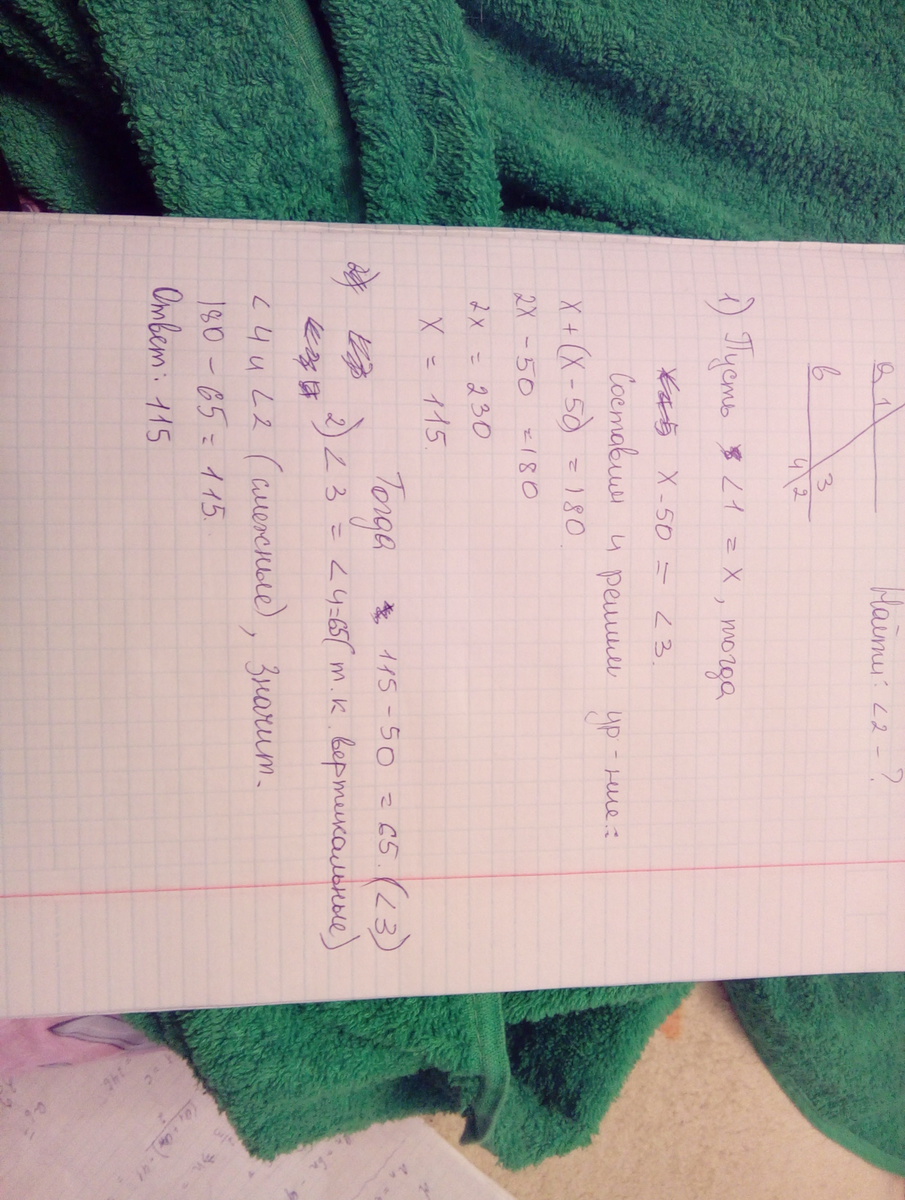 Найти: ∠2 - ?
a 1
b 3
4 2
1) Пусть ∠1 = x, тогда
x - 50 = ∠3.
Составим и решим ур-ние:
x + (x - 50) = 180
2x - 50 = 180
2x = 230
x = 115.
Тогда 115 - 50 = 65. (∠3)
2) ∠3 = ∠4 = 65 (т.к. вертикальные)
∠4 и ∠2 (смежные), значит.
180 - 65 = 115.
Ответ: 115